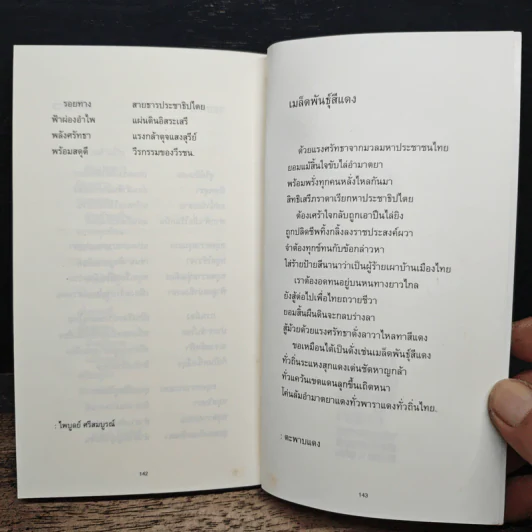 รอยทาง สายธารประชาธิปไตย
ฟ้าผ่องอำไพ แผ่นดินอิสระเสรี
พลังศรัทธา แรงกล้าดุจแสงสุรีย์
พร้อมสดุดี วีรกรรมของวีรชน.
: ไพบูลย์ ศรีสมบูรณ์
142
เมล็ดพันธุ์สีแดง
ด้วยแรงศรัทธาจากมวลมหาประชาชนไทย
ยอมแม้สิ้นใจขับไล่อำมาตยา
พร้อมพรั่งทุกคนหลั่งไหลกันมา
สิทธิเสรีภราดาเรียกหาประชาธิปไตย
ต้องเศร้าใจกลับถูกเอาปืนไล่ยิง
ถูกปลิดชีพทิ้งกลิ้งลงราชประสงค์ผวา
จำต้องทุกข์ทนกับข้อกล่าวหา
ใส่ร้ายป้ายสีนานาว่าเป็นผู้ร้ายเผาบ้านเมืองไทย
เราต้องอดทนอยู่บนหนทางยาวไกล
ยังสู้ต่อไปเพื่อไทยถวายชีวา
ยอมสิ้นผืนดินจะกลบร่างลา
สู้ม้วยด้วยแรงศรัทธาดั่งลาวาไหลทาสีแดง
ขอเหมือนได้เป็นดั่งเช่นเมล็ดพันธุ์สีแดง
ทั่วถิ่นระแหงสุกแดงเด่นชัดหาญกล้า
ทั่วแคว้นเขตแดนลุกขึ้นเถิดหนา
โค่นล้มอำมาตยาแดงทั่วพาราแดงทั่วถิ่นไทย.
: ตะพาบแดง
143